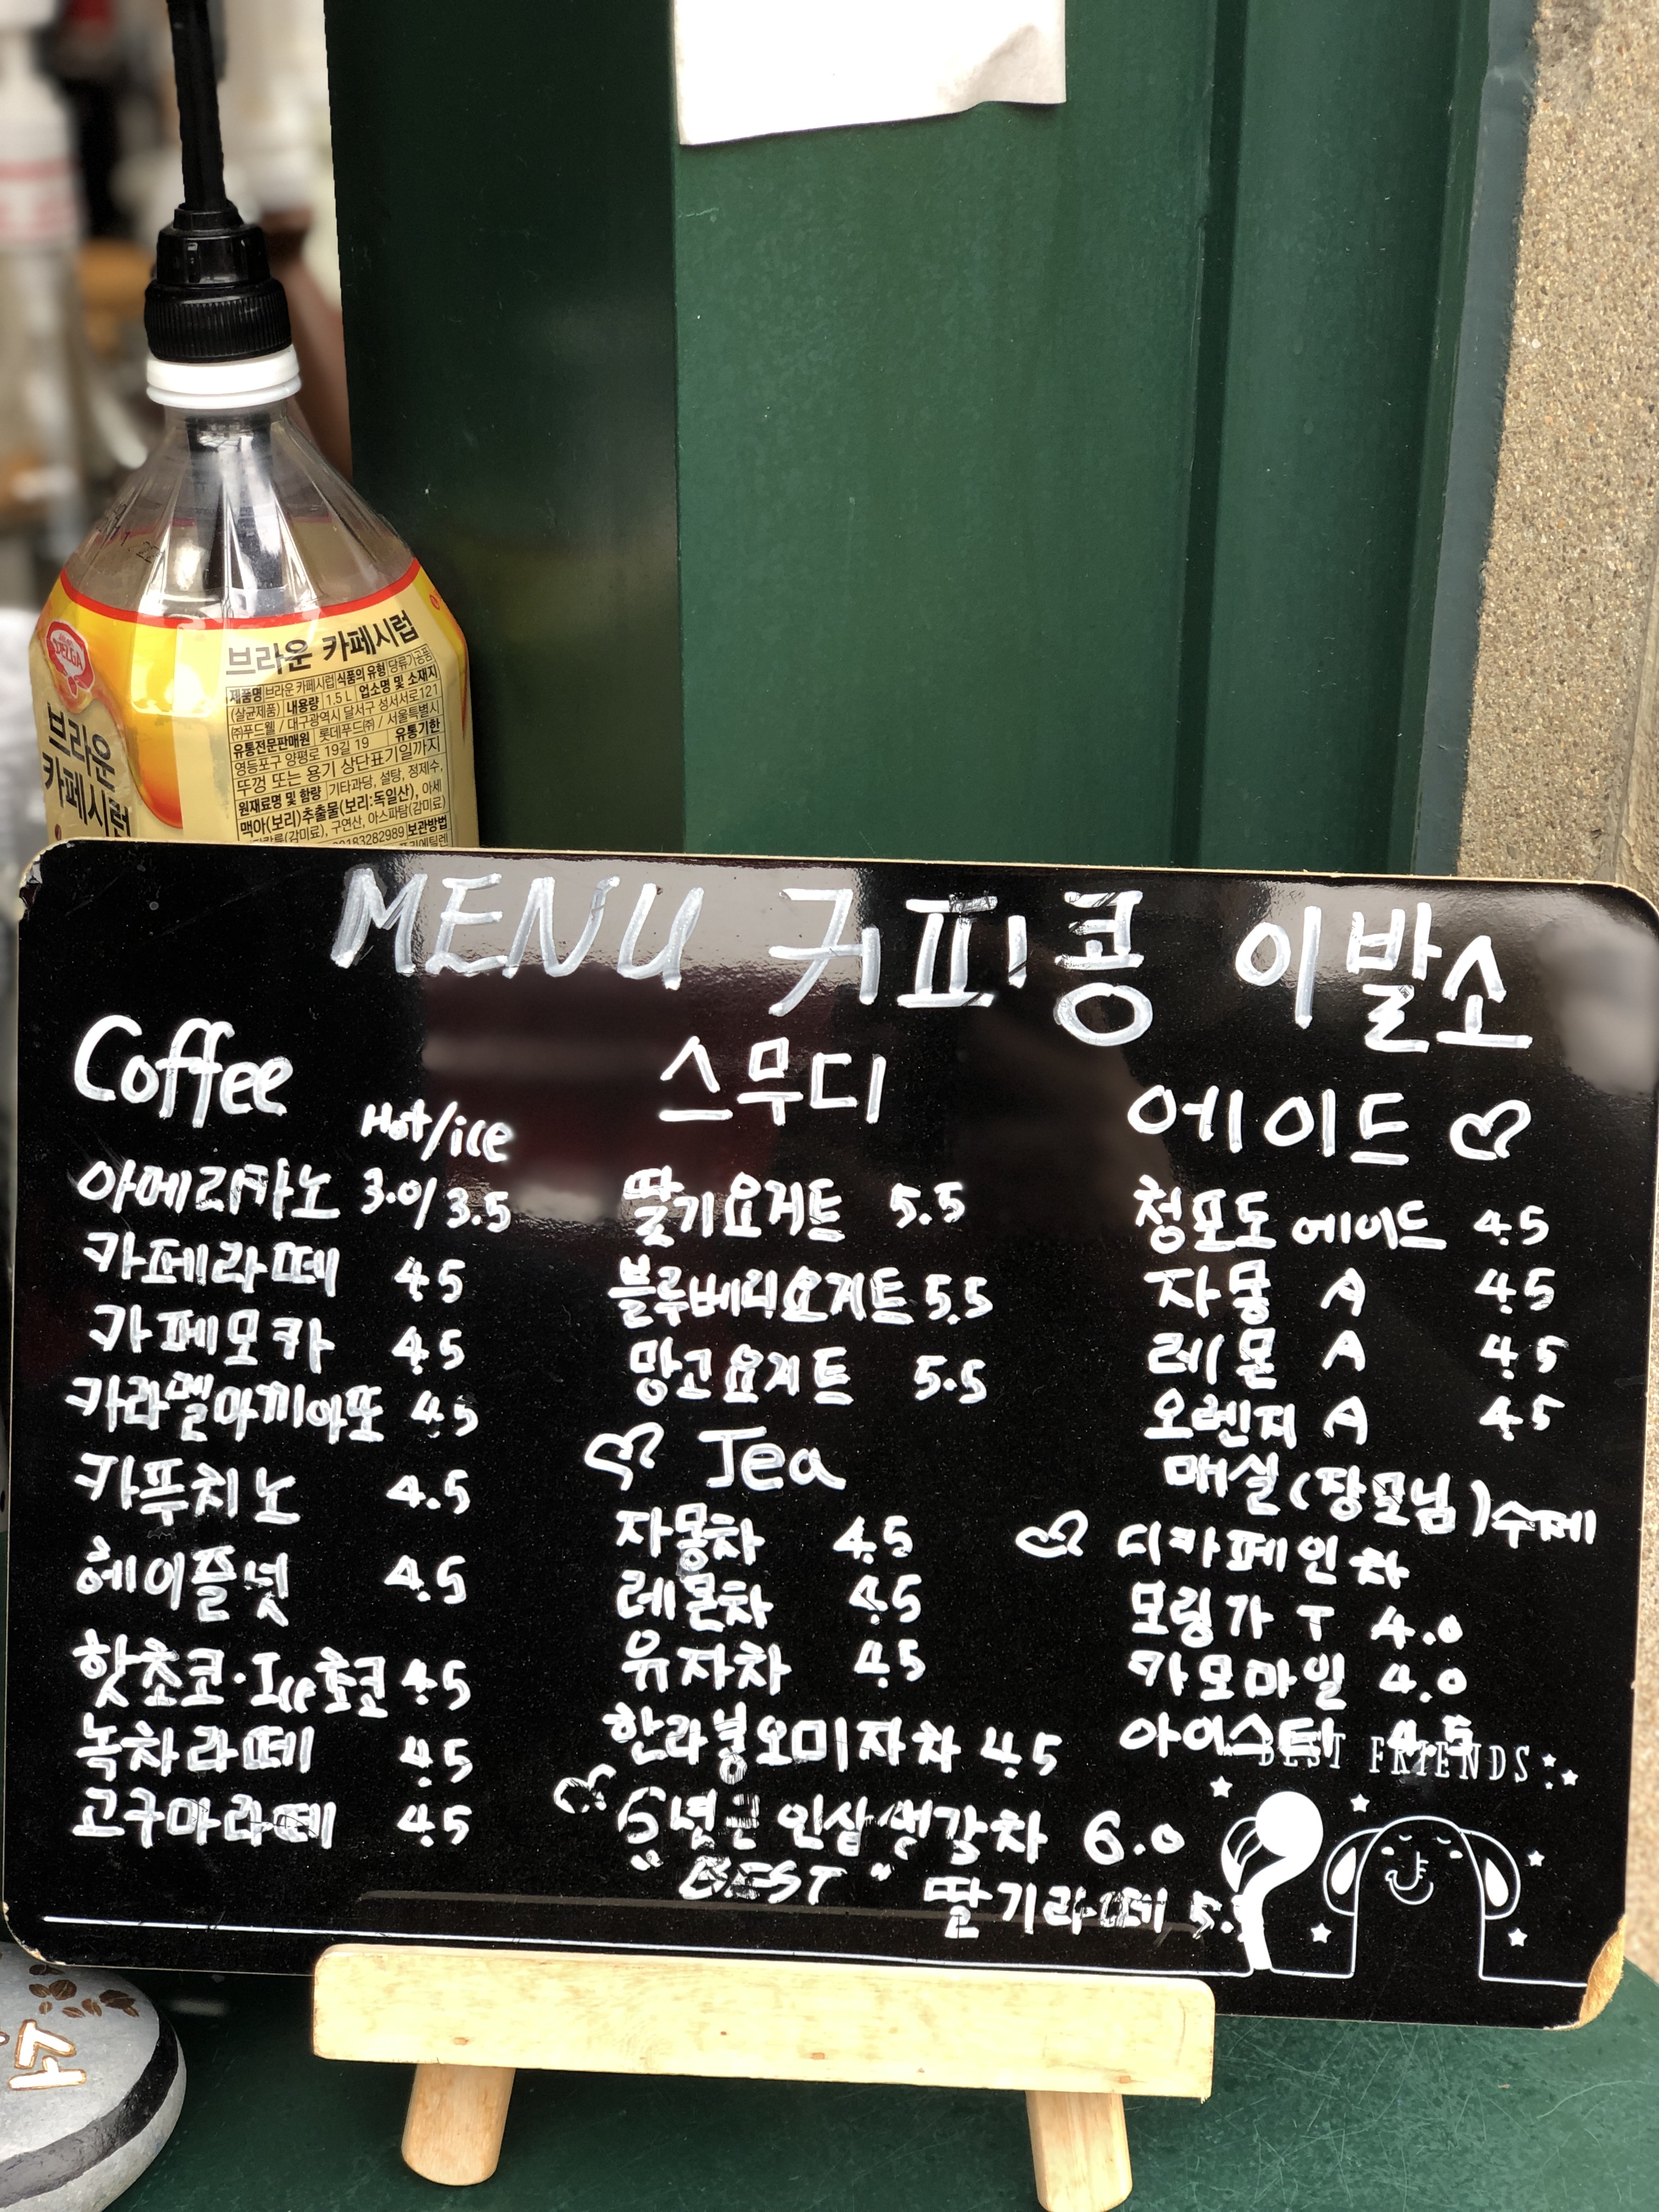 DELGA
브라운
카페시럽
브라운 카페시럽
제품명 브라운 카페시럽 식품의 유형 당류가공품
(살균제품) 내용량 1.5 L 업소명 및 소재지
㈜푸드웰 / 대구광역시 달서구 성서서로121
유통전문판매원 롯데푸드㈜ / 서울특별시
영등포구 양평로 19길 19 유통기한
뚜껑 또는 용기 상단표기일까지
원재료명 및 함량 기타과당, 설탕, 정제수,
맥아(보리)추출물(보리:독일산), 아세
(감미료), 구연산, 아스파탐(감미료)
83282989 보관방법
MENU 커피콩 이발소
Coffee
Hot/ice
아메리카노 3.0/3.5
카페라떼 4.5
카페모카 4.5
카라멜마끼아또 4.5
카푸치노 4.5
헤이즐넛 4.5
핫초코·Ice초코 4.5
녹차라떼 4.5
고구마라떼 4.5
스무디
딸기요거트 5.5
블루베리요거트 5.5
망고요거트 5.5
Tea
자몽차 4.5
레몬차 4.5
유자차 4.5
한라봉오미자차 4.5
6년근 인삼생강차 6.0
"BEST" 딸기라떼 5.
에이드
청포도 에이드 4.5
자몽 A 4.5
레몬 A 4.5
오렌지 A 4.5
매실(장모님)수제
디카페인차
모링가 T 4.0
카모마일 4.0
아이스티 4.5
BEST FRIENDS
소